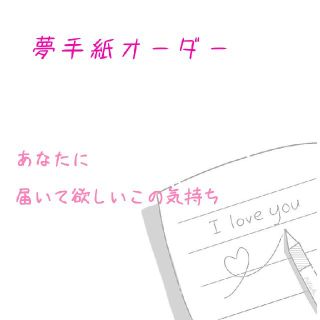 夢手紙オーダー
あなたに
届いて欲しいこの気持ち
I love you